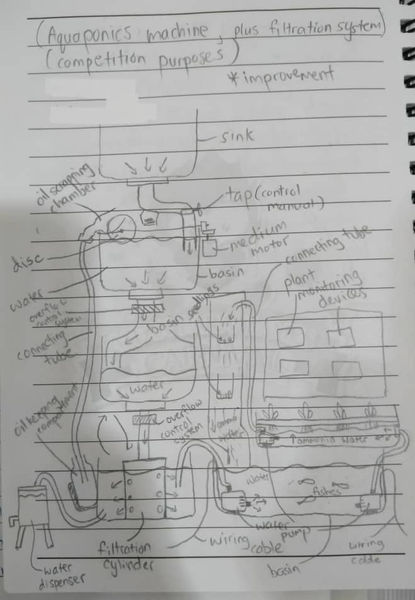 (Aquaponics machine, plus filtration system)
(competition purposes)
*improvement
sink
oil scrapping
chamber
tap (control
manual)
disc
medium
motor
connecting tube
basin
plant
monitoring
devices
water
overflow
control
system
basin
seedlings
connecting
tube
water
overflow
control
system
oil keeping compartment
ammonia
water
↑ammonia water
water
fishes
water
pump
filtration
cylinder
wiring
cable
wiring
cable
basin
water
dispenser